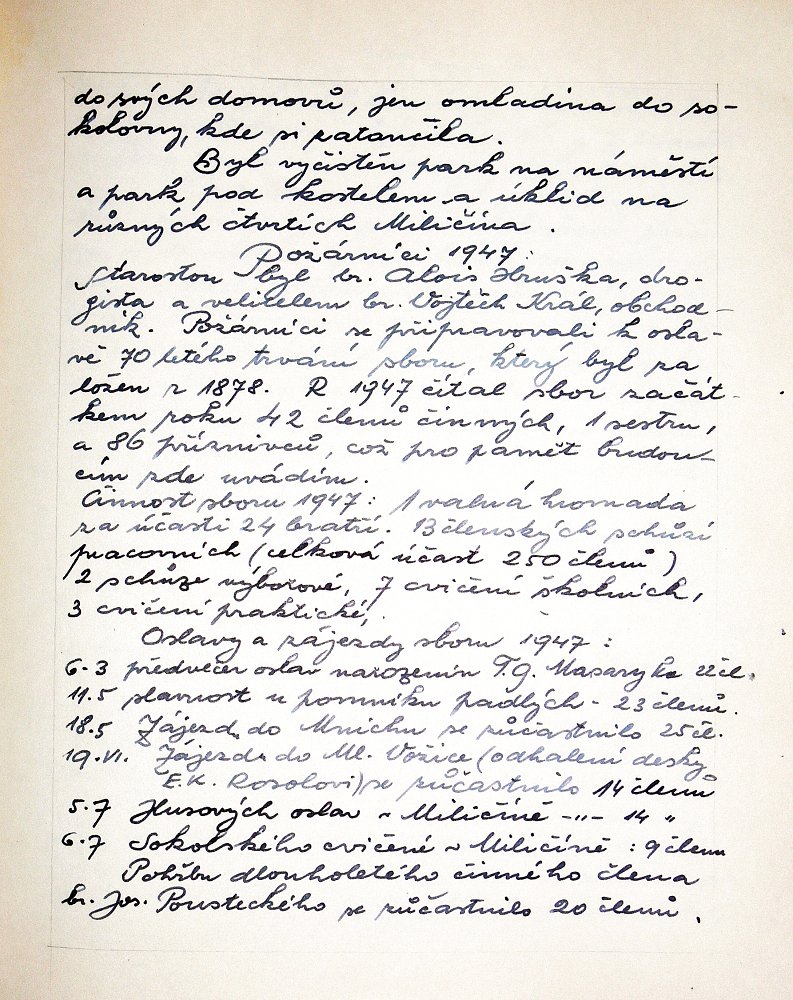 do svých domovů, jen omladina do so-
kolovny, kde si zatančila.
Byl vyčistěn park na náměstí
a park pod kostelem a úklid na
různých čtvrtích Miličína.
Požárníci 1947:
Starostou byl br. Alois Hruška, dro-
gista a velitelem br. Vojtěch Král, obchod-
ník. Požárníci se připravovali k osla-
vě 70 letého trvání sboru, který byl za
ložen r 1878. R 1947 čítal sbor začát-
kem roku 42 členů činných, 1 sestru,
a 86 příznivců, což pro pamět budou-
cím zde uvádím.
Činnost sboru 1947: 1 valná hromada
za účasti 24 bratří. 13 členských schůzí
pracovních (celková účast 250 členů)
2 schůze výborové, 7 cvičení školních,
3 cvičení praktické,
Oslavy a zájezdy sboru 1947:
6.3 předvečer oslav narozenin T.G. Masaryka 22 čl.
11.5 slavnost u pomníku padlých - 23 členů.
18.5 Zájezdu do Mnichu se zúčastnilo 25 čl.
19.VI. Zájezdu do Ml. Vožice (odhalení desky
E.K. Rosolovi) se zúčastnilo 14 členů
5.7 Husových oslav v Miličíně -"- 14 "
6.7 Sokolského cvičené v Miličíně : 9 členu
Pohřbu dlouholetého činného člena
br. Jos. Pousteckého se zúčastnilo 20 členů.